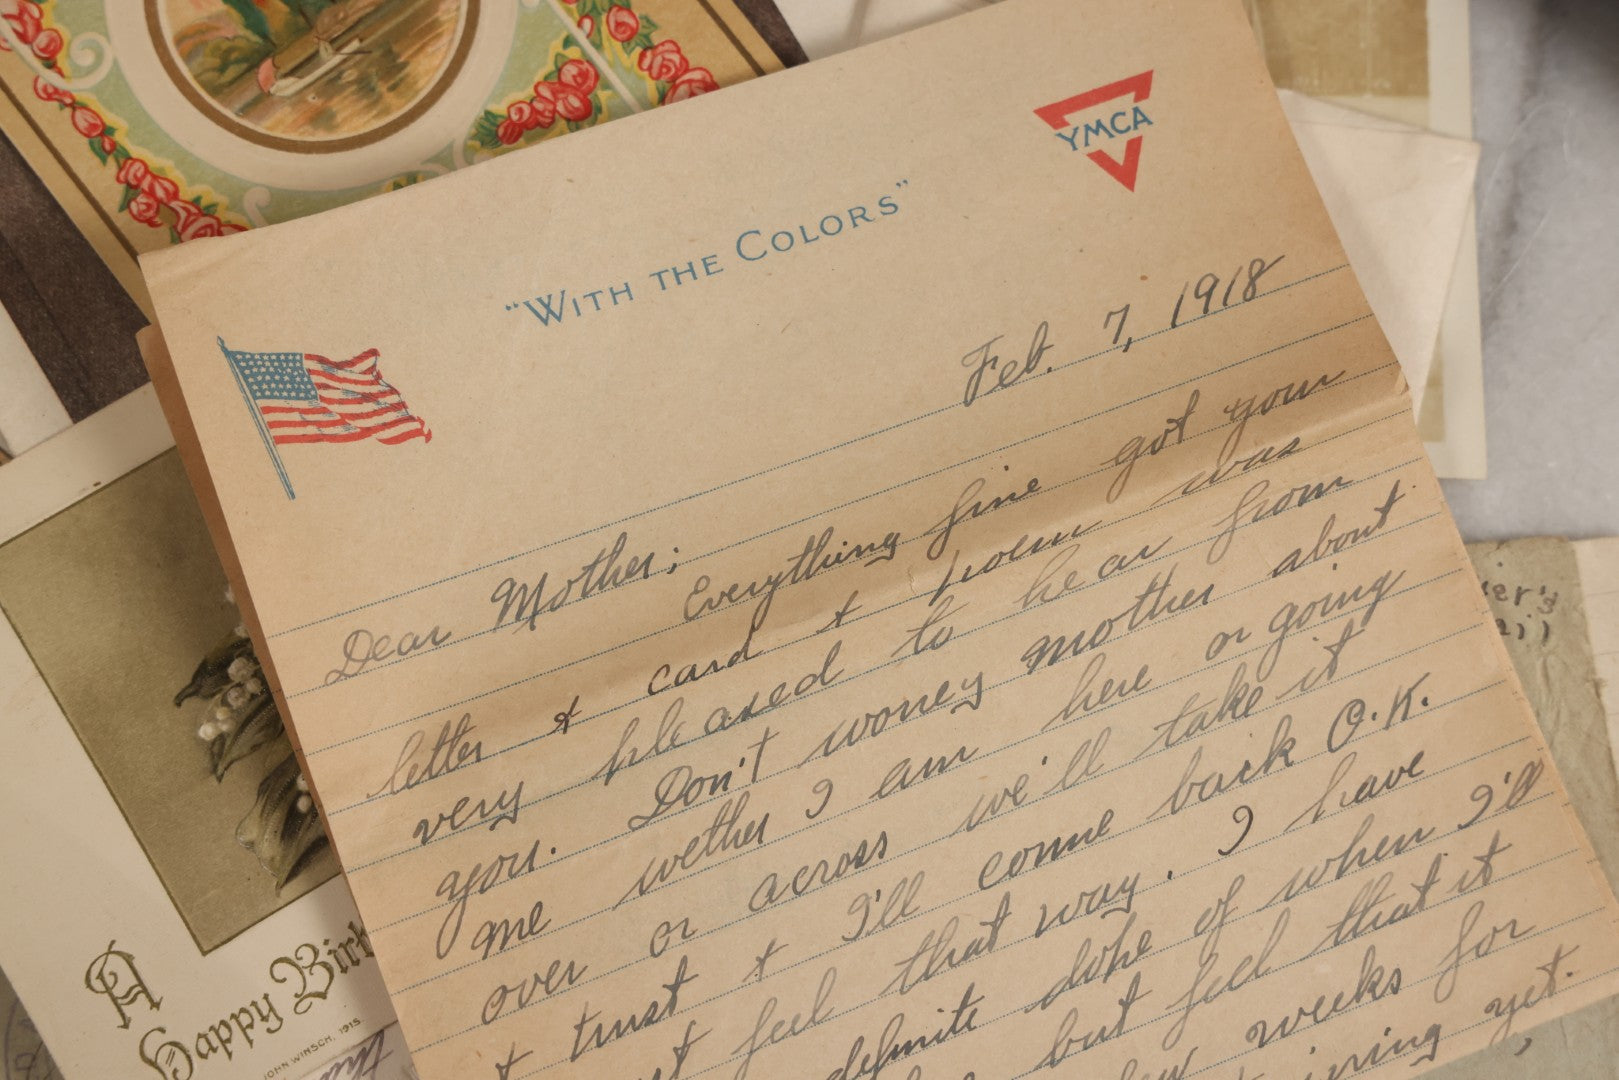 YMCA
"WITH THE COLORS"
Feb. 7, 1918
Dear Mother;
Everything fine got your
letter & card & poem was
very pleased to hear from
you. Don't worrey mother about
me wether I am here or going
over or across we'll take it
& trust & I'll come back O.K.
feel that way. I have
definite dope of when I'll
but feel that it
weeks for
yet.
A
Happy Birt
JOHN WINSCH, 1915